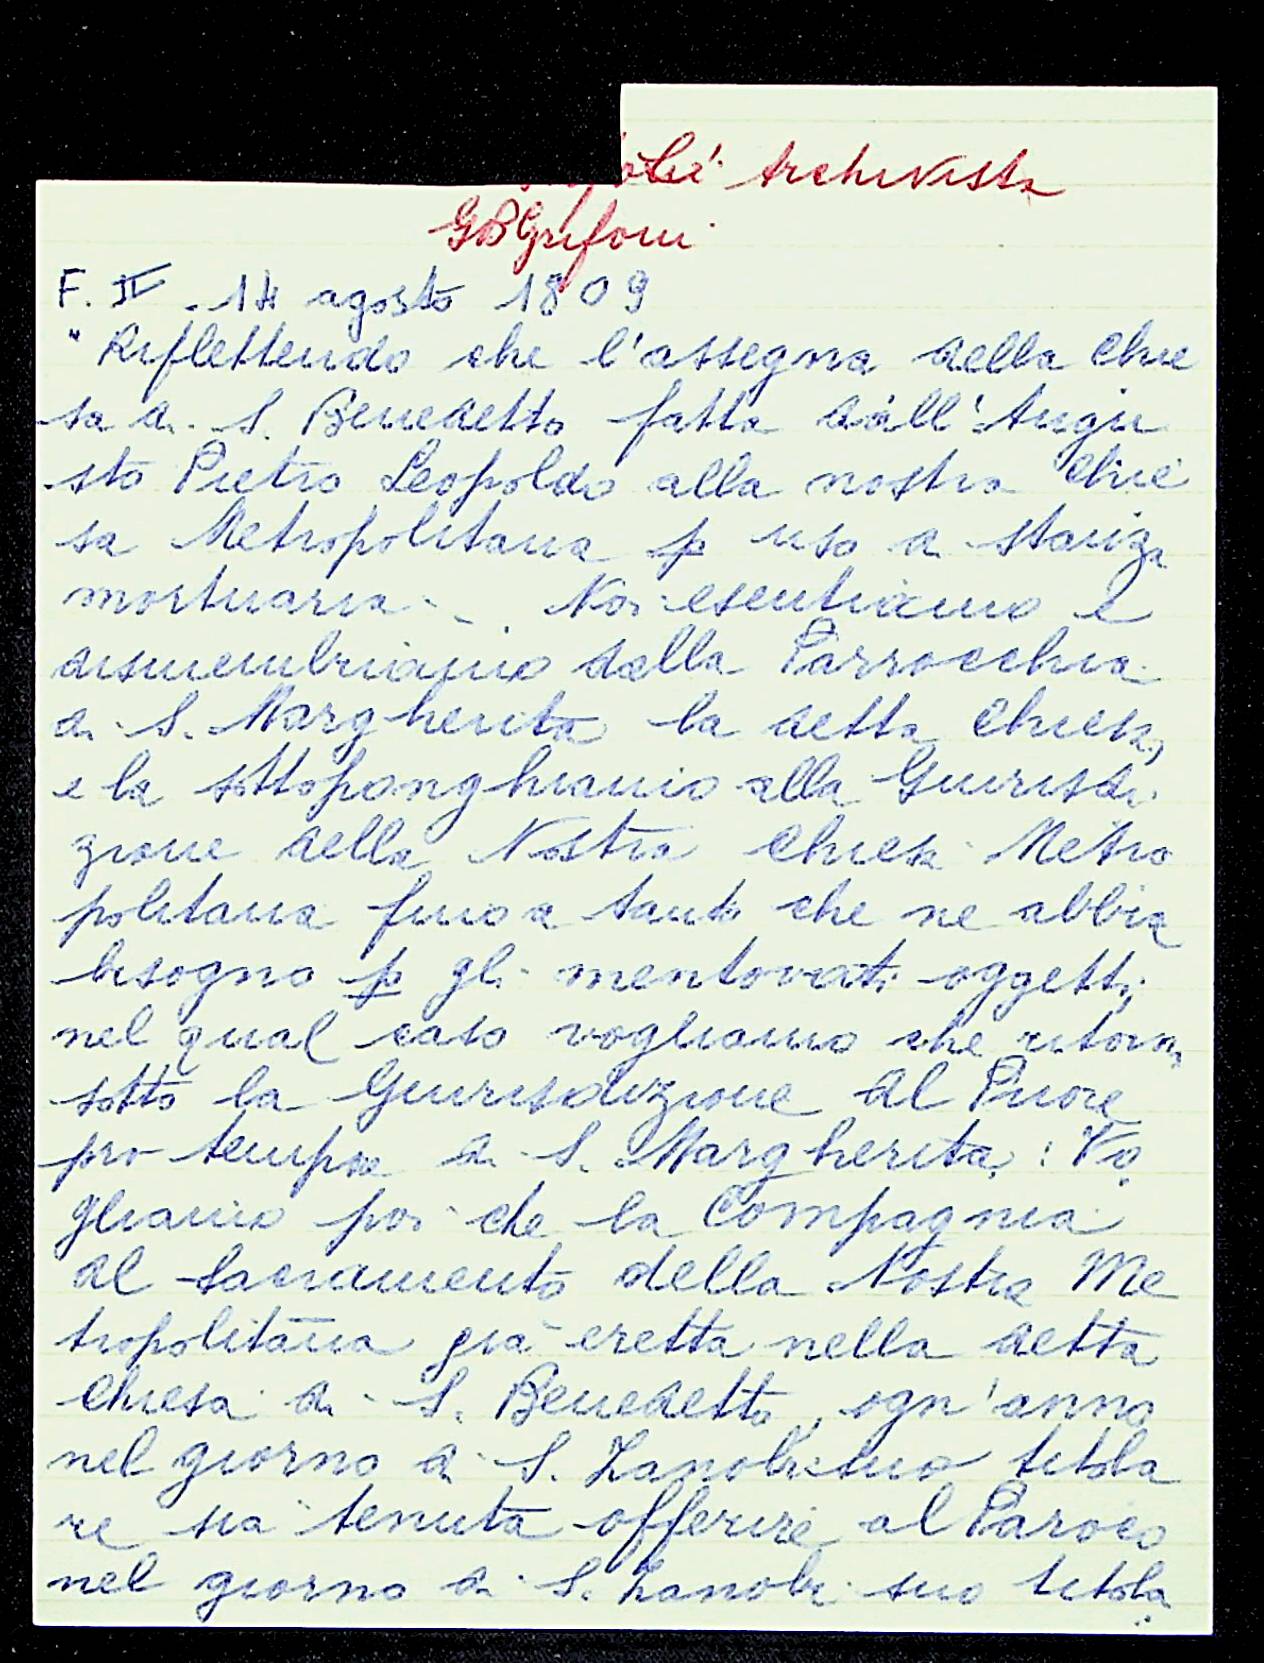 Archivista
GBGrifoni
F. II - 14 agosto 1809
"Riflettendo che l'assegna della Chie
sa di S. Benedetto fatta dall'Augu
sto Pietro Leopoldo alla nostra Chie
sa Metropolitana p uso di stanza
mortuaria - Noi esentiamo e
dismembriamo dalla Parrocchia
di S. Margherita la detta Chiesa,
e la sottoponghiamo alla Giurisdi
zione della Nostra Chiesa Metro
politana fino a tanto che ne abbia
bisogno p gli mentovati oggetti;
nel qual caso vogliamo che ritorni
sotto la Giurisdizione del Priore
pro tempore di S. Margherita: Vo
gliamo poi che la Compagnia
del Sacramento della Nostra Me
tropolitana già eretta nella detta
Chiesa di S. Benedetto, ogn'anno
nel giorno di S. Zanobi suo titola
re sia tenuta offerire al Paroco
nel giorno di S. Zanobi suo titola